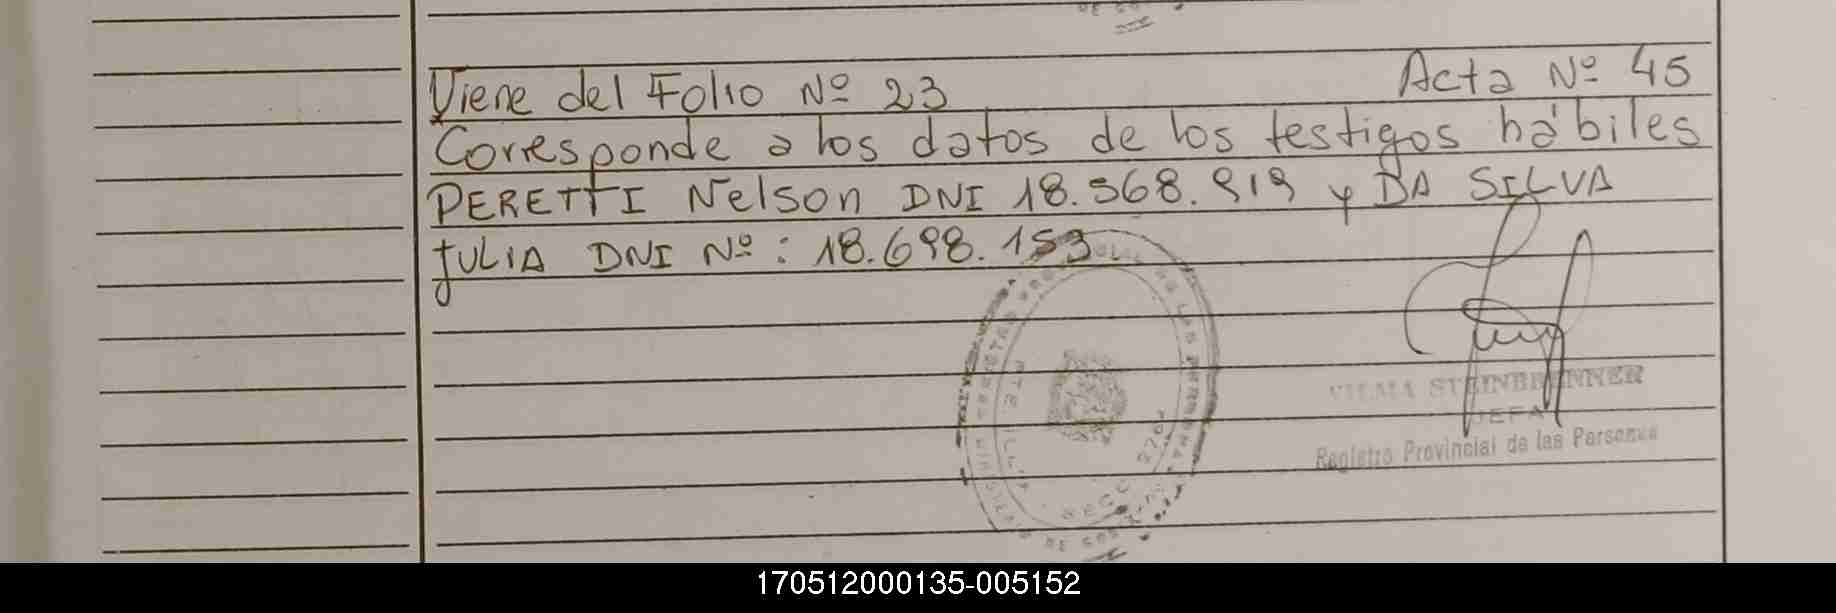 Viene del Folio Nº 23 Acta Nº 45
Corresponde a los datos de los testigos hábiles
PERETTI Nelson DNI 18.568.919 y DA SILVA
JULIA DNI Nº: 18.698.153
VILMA STEINBRENNER
JEFA
Registro Provincial de las Personas
170512000135-005152